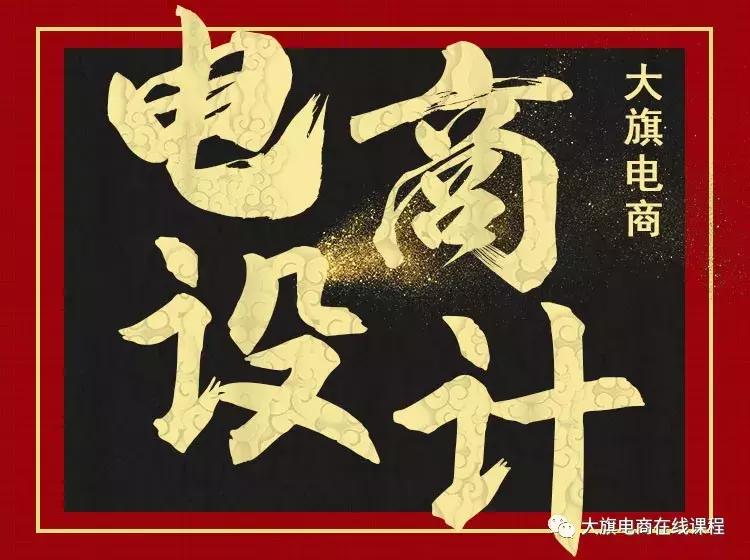 电商
设计
大旗电商
大旗电商在线课程